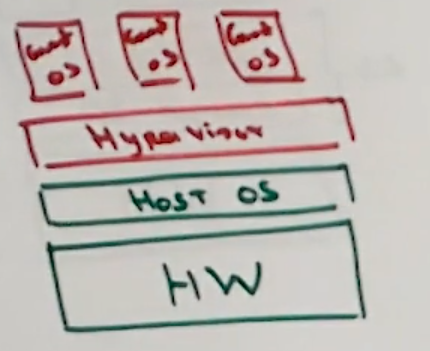 Guest OS
Guest OS
Guest OS
Hypervisor
HOST OS
HW